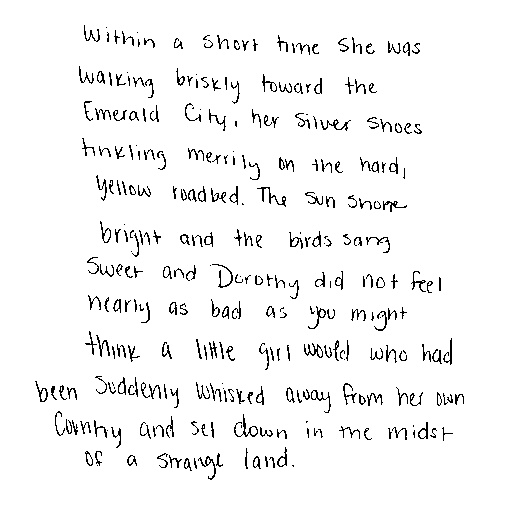 Within a short time she was
walking briskly toward the
Emerald City, her Silver Shoes
tinkling merrily on the hard,
yellow roadbed. The sun shone
bright and the birds sang
Sweet and Dorothy did not feel
nearly as bad as you might
think a little girl would who had
been Suddenly whisked away from her own
Country and set down in the midst
of a strange land.